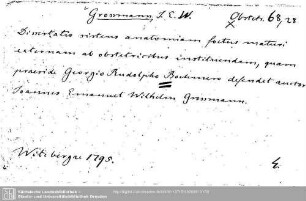 Grossmann, J. E. W. Obstetr. 68,28
Dissertatio sistens anatomiam foetus maturi
externam ab obstetricibus instituendam, quam
praeside Georgio Rudolpho Boehmero defendet auctor
Joannes Emanuel Wilhelm Grossmann.
Witebergae 1795.
Sächsische Landesbibliothek -
Staats- und Universitätsbibliothek Dresden